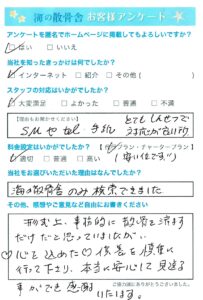 海の散骨舎 お客様アンケート
アンケートを匿名でホームページに掲載してもよろしいですか?
はい □いいえ
当社を知ったきっかけは何でしたか?
インターネット □紹介 □その他(
スタッフの対応はいかがでしたか?
大変満足 □よかった □普通 □不満
【理由もお聞かせください】
料金設定はいかがでしたか?
プラン・チャータープラン
適切 □普通 □高い
当社をお選びいただいた理由はなんでしたか?
海の散骨舎のみ検索できました
その他、感想やご意見など自由にお書きください
形式上、事務的に散骨を済ます
だけだと思っていましたが、
心を込めた♡供養を
行って下さり、本当に安心して見送る
事ができ感謝
いたします。
ご協力誠にありがとうございました。